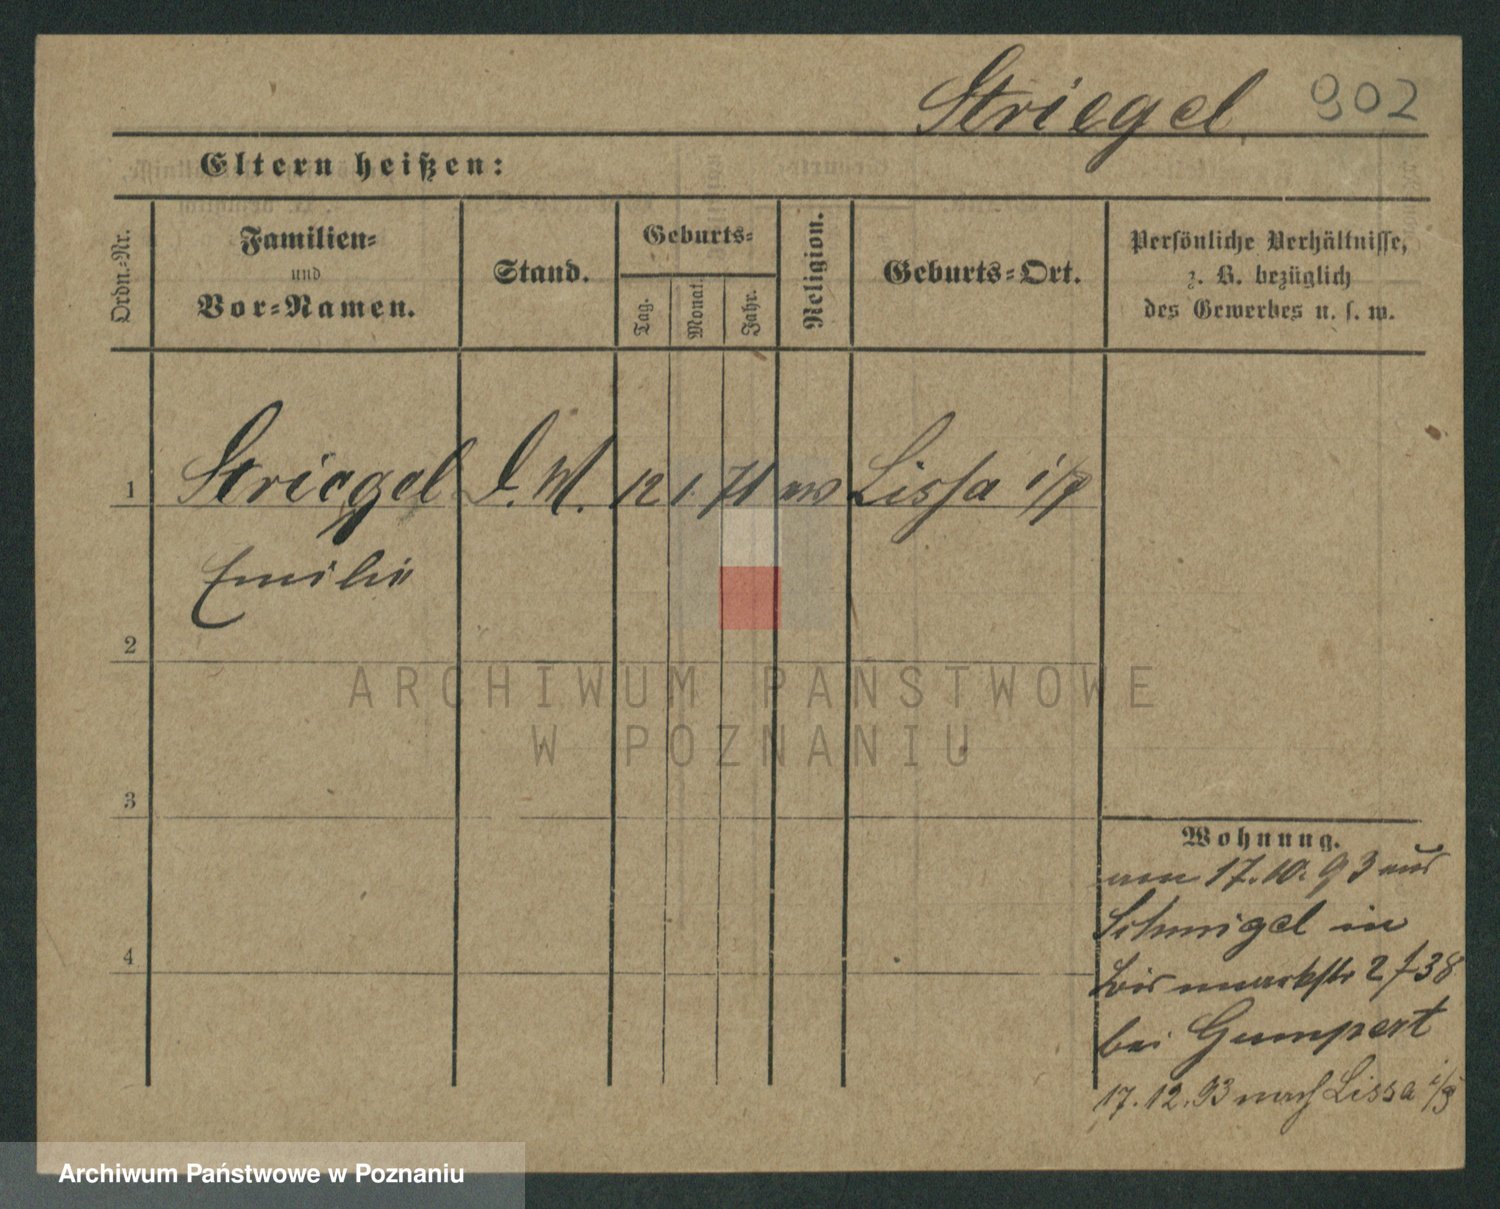 Striegel 902
Eltern heißen:
Ordn.-Nr.
Familien-
und
Vor-Namen.
Stand.
Geburts-
Tag.
Monat.
Jahr.
Religion.
Geburts-Ort.
Persönliche Verhältnisse,
z. B. bezüglich
des Gewerbes u. s. w.
1 Striegel D. M. 12 1. 71 Lissa i/P
Emilie
2
ARCHIWUM PAŃSTWOWE
W POZNANIU
3
4
Wohnung.
am 17.10.93 aus
Schmigel in
Bismarkstr 2 38
bei Gumpert
17.12.93 nach Lissa i/P
Archiwum Państwowe w Poznaniu